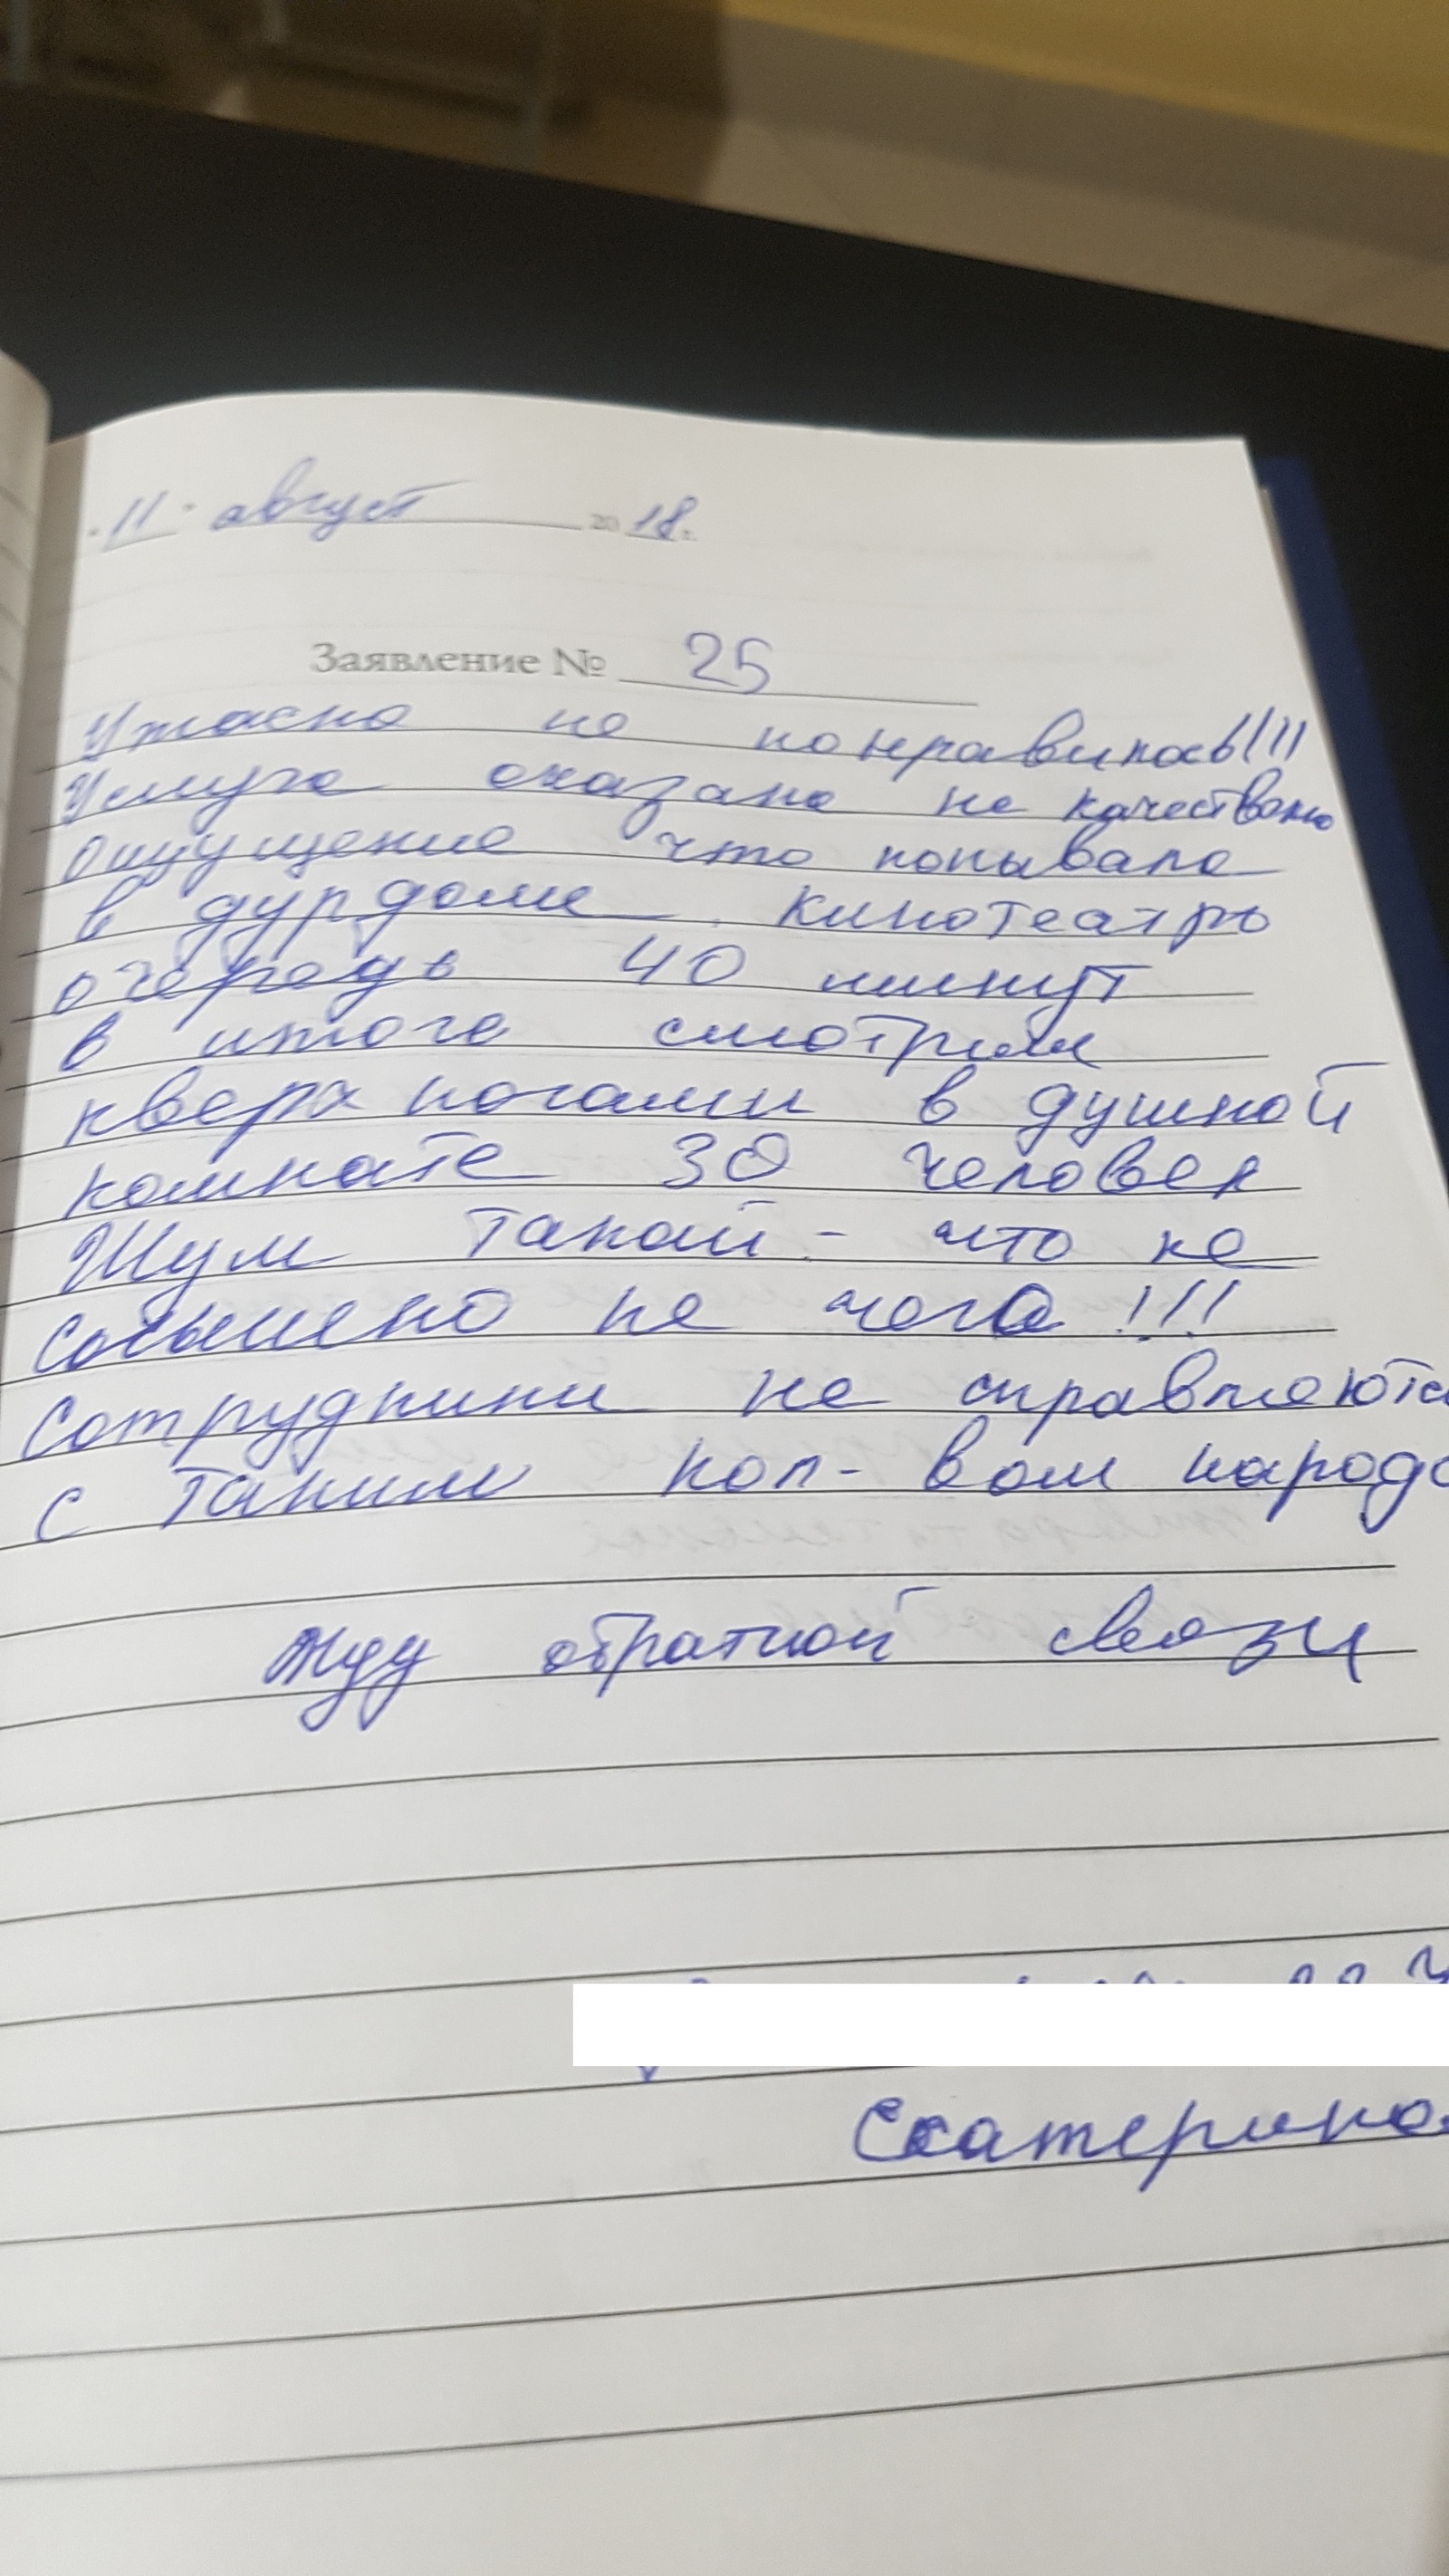 "11" август 2018 г.
Заявление № 25
Ужасно не понравилось!!!!
Услуга оказана не качествено
Ощущение что попывала
в дурдоме. Кинотеатръ
очередь 40 минут
в итоге смотрим
кверх ногами в душной
комнате 30 человек
Шум такой - что не
слышено не чего!!!
Сотрудники не справлеютс
с таким кол-вом народа
Жду обратной связи
Екатерина